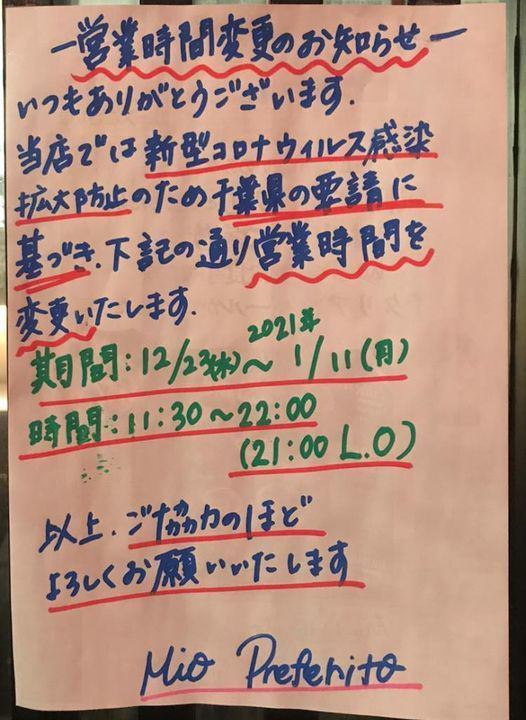 ー営業時間変更のお知らせー
いつもありがとうございます.
当店では新型コロナウィルス感染
拡大防止のため千葉県の要請に
基づき.下記の通り営業時間を
変更いたします.
期間:12/23(水)～2021年1/11(月)
時間:11:30～22:00
(21:00 L.O)
以上.ご協力のほど
よろしくお願いいたします
Mio Preferito